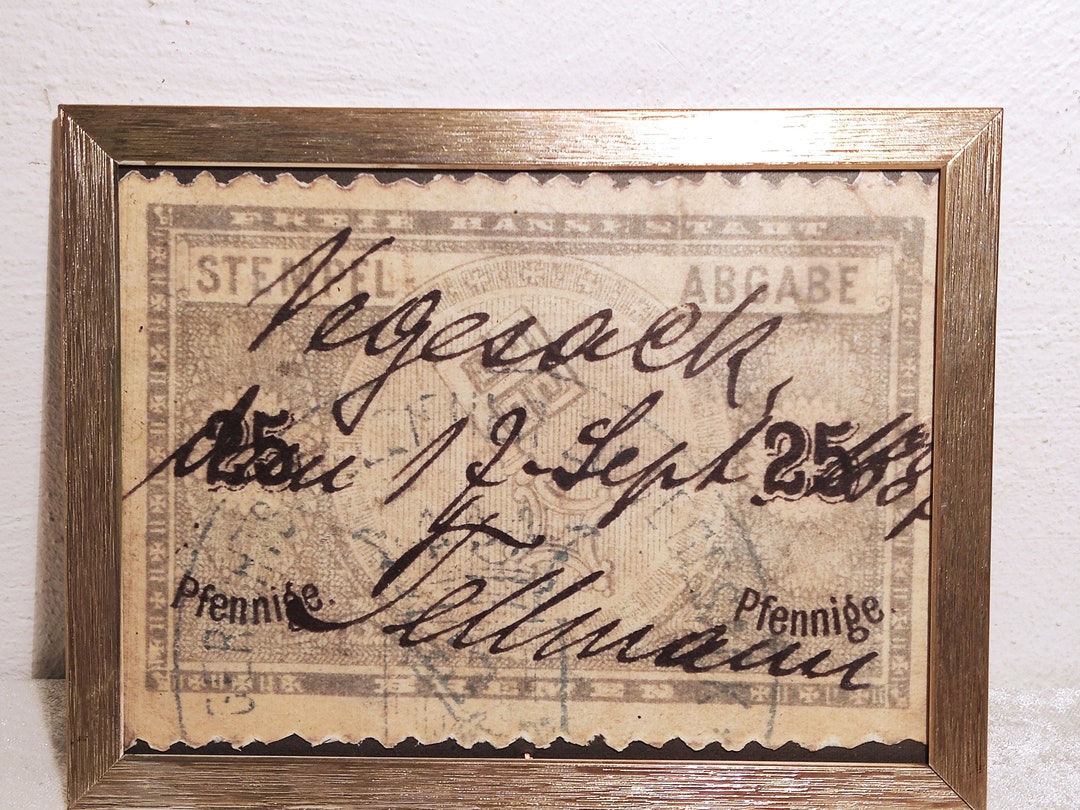 FREIE HANSESTADT
STEMPEL- ABGABE
Vegesack,
25 25
den 12. Sept
Tellmann
Pfennige. Pfennige.
BREMEN